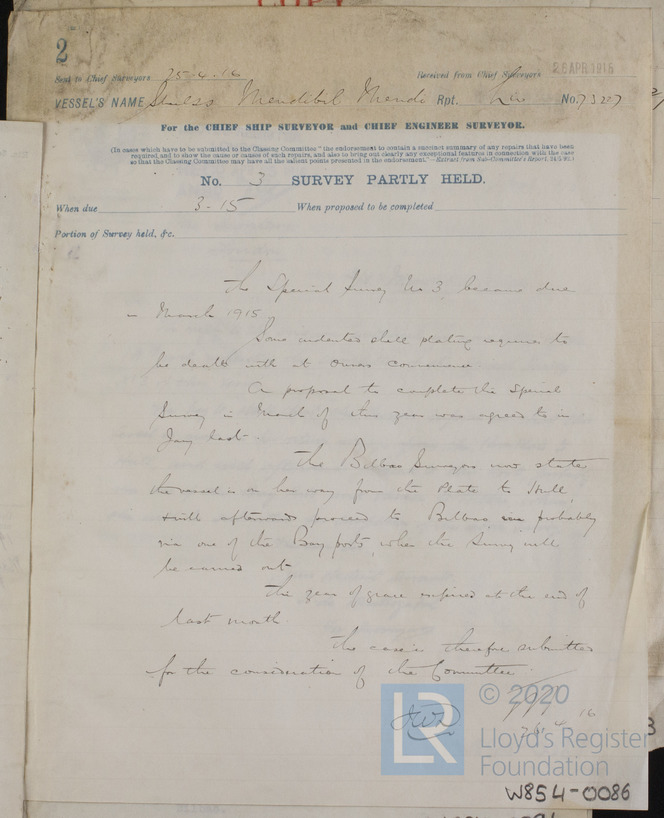 COPY
2
Sent to Chief Surveyors 25-4-16 Received from Chief Surveyors 26 APR 1916
VESSEL'S NAME Mendibil Mendi Rpt. No. 73207
For the CHIEF SHIP SURVEYOR and CHIEF ENGINEER SURVEYOR.
(In cases which have to be submitted to the Classing Committee "the endorsement to contain a succinct summary of any repairs that have been
required, and to show the cause or causes of such repairs, and also to bring out clearly any exceptional features in connection with the case
so that the Classing Committee may have all the salient points presented in the endorsement."—Extract from Sub-Committee's Report,
No. 3 SURVEY PARTLY HELD.
When due 3-15 When proposed to be completed
Portion of Survey held, &c.
The Special Survey No 3 became due
in March 1915
Some indented shell plating requires to
be dealt with at Owners convenience
A proposal to complete the Special
Survey in March of this year was agreed to in
Jany last.
The Bilbao Surveyors now state
the vessel is on her way from the Plate to Hull
& will afterwards proceed to Bilbao probably
via one of the Bay ports, when the Survey will
be carried out
The year of grace expired at the end of
last month.
The case is therefore submitted
for the consideration of the Committee.
16
LR
© 2020
Lloyd's Register
Foundation
W854-0086